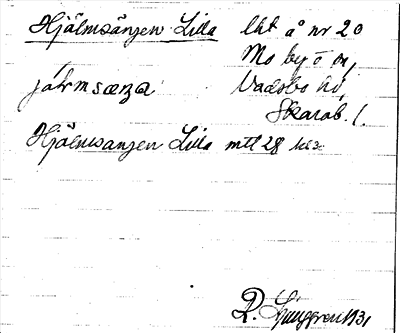 Hjälmsängen Lilla lht å nr 20
Mo by o sn,
jälmsæŋa Vadsbo hd,
Skarab. l.
Hjälmsängen Lilla mtl 28
R. Ljunggren 1931